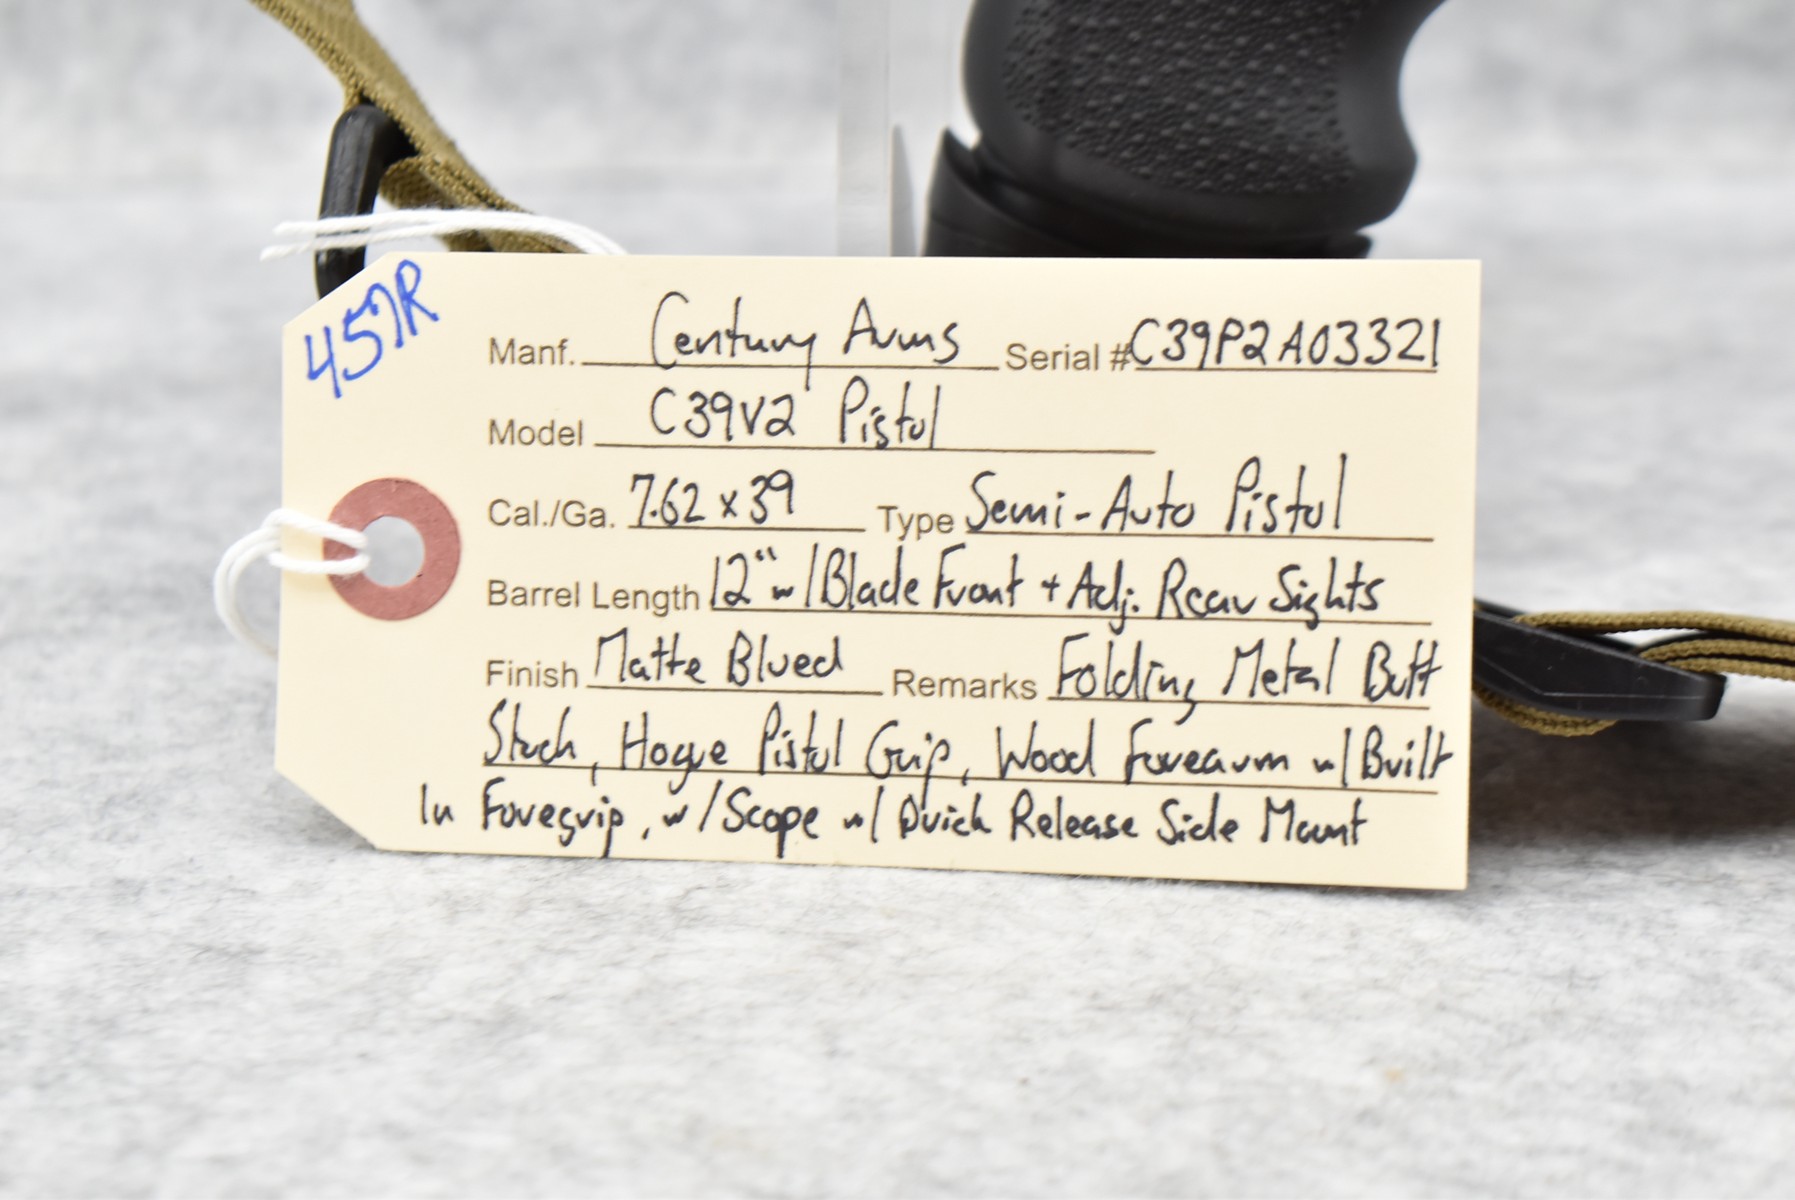 457R
Manf. Century Arms Serial # C39P2A03321
Model C39V2 Pistol
Cal./Ga. 7.62 x 39 Type Semi-Auto Pistol
Barrel Length 12" w/ Blade Front + Adj. Rear Sights
Finish Matte Blued Remarks Folding Metal Butt
Stock, Hogue Pistol Grip, Wood Forearm w/ Built
In Foregrip, w/ Scope w/ Quick Release Side Mount